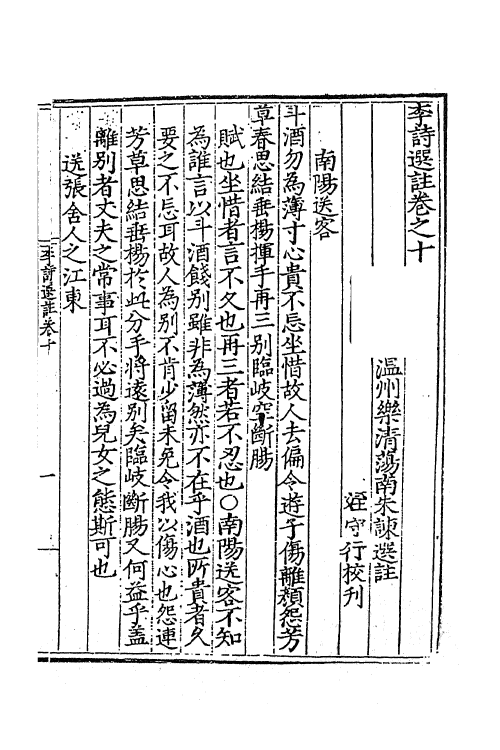 李詩選註卷之十
溫州樂清蕩南朱諫選註
姪守行校刋
南陽送客
斗酒勿為薄寸心貴不忘坐惜故人去偏令遊子傷離顏怨芳
草春思結垂楊揮手再三別臨岐空斷腸
賦也坐惜者言不久也再三者若不忍也○南陽送客不知
為誰言以斗酒餞別雖非為薄然亦不在乎酒也所貴者久
要之不忘耳故人為別不肯少留未免令我以傷心也怨連
芳草思結垂楊於此分手將遠別矣臨岐斷腸又何益乎盖
離別者丈夫之常事耳不必過為兒女之態斯可也
送張舍人之江東
李詩選註卷十
一